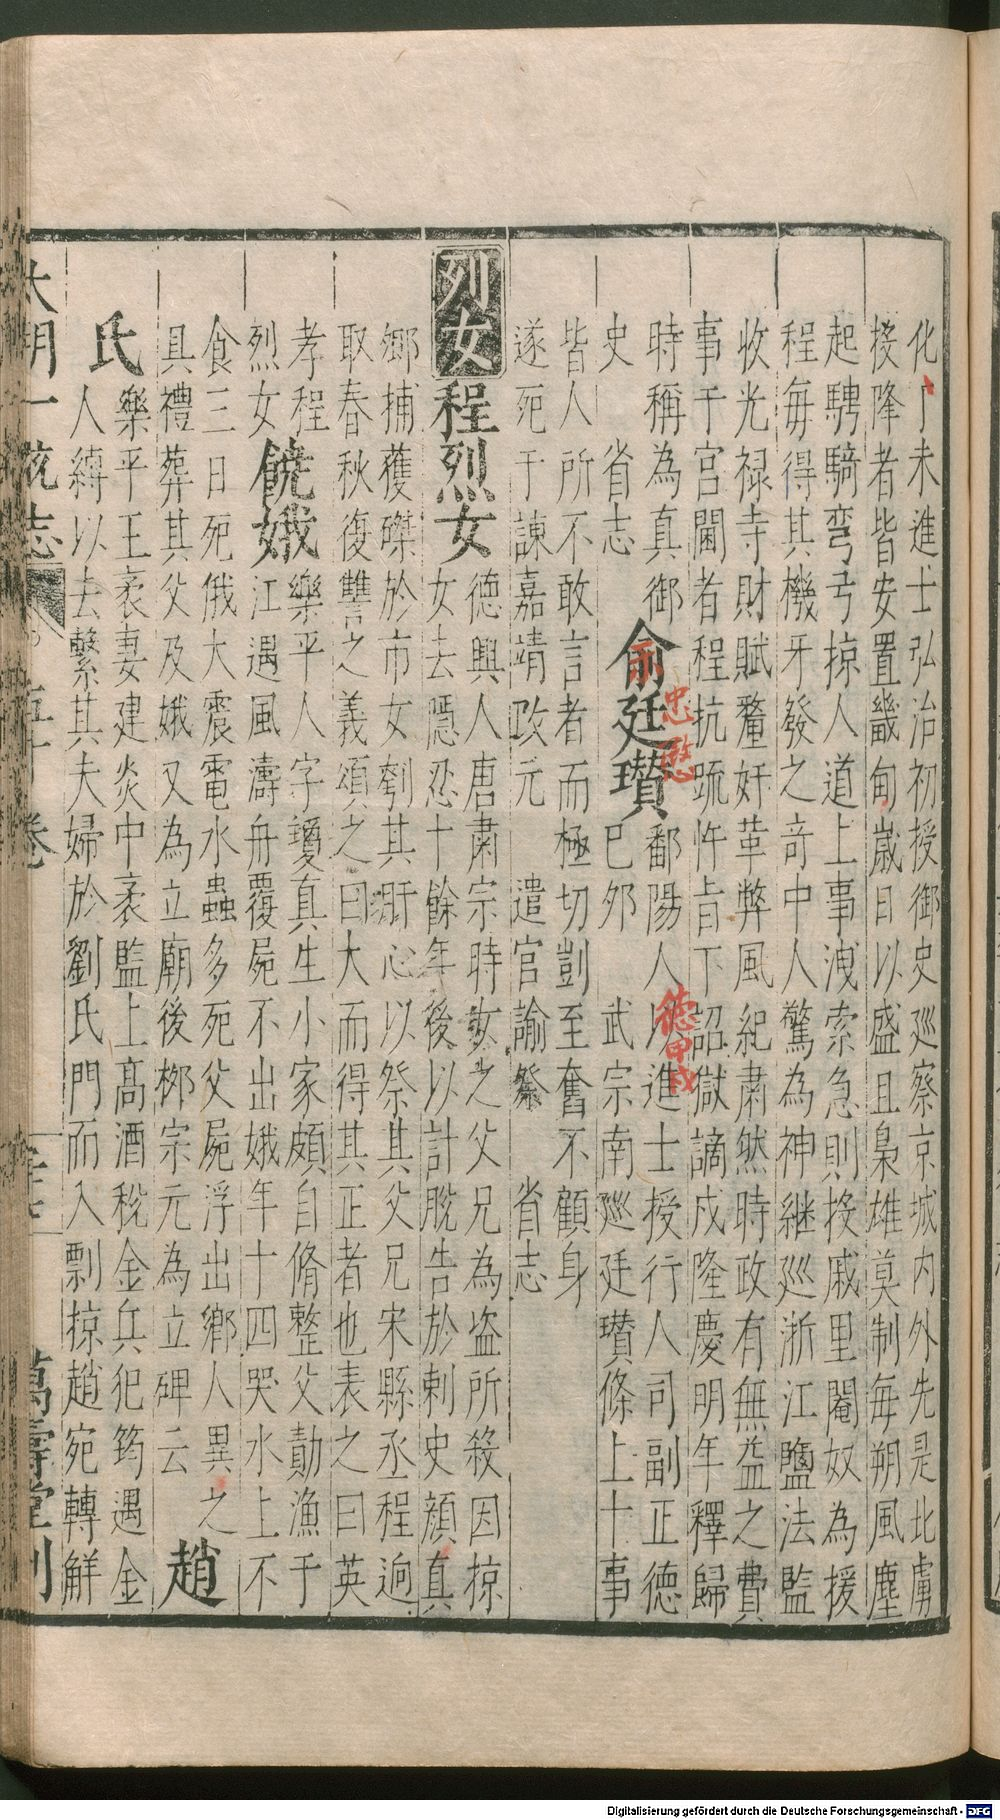 化丁未進士弘治初授御史廵察京城内外先是北虜
接降者皆安置畿甸歲日以盛且梟雄莫制每朔風塵
起騁騎弯弓掠人道上事洩索急則投戚里閹奴為援
程毎得其機牙發之竒中人驚為神継廵浙江鹽法監
收光禄寺財賦釐奸革弊風紀肅然時政有無益之費
事于宮閫者程抗䟽忤旨下詔獄謫戍隆慶明年釋歸
時稱為真御
史 省志
俞廷瓉
鄱陽人 進士授行人司副正德
巳夘 武宗南廵廷瓉條上十事
皆人所不敢言者而極切剴至奮不顧身
遂死于諫嘉靖改元 遣官諭祭 省志
列女
程烈女
德興人唐肅宗時女之父兄為盗所殺因掠
女去隱忍十餘年後以計脫告於刺史顔真
卿捕獲磔於市女刳其肝心以祭其父兄宋縣丞程迥
取春秋復讐之義頌之曰大而得其正者也表之曰英
孝程
烈女
饒娥
樂平人字瓊真生小家頗自脩整父勣漁于
江遇風濤舟覆屍不出娥年十四哭水上不
食三日死俄大震電水蟲多死父屍浮出鄉人異之
具禮葬其父及娥又為立廟後栁宗元為立碑云
趙
氏
樂平王袤妻建炎中袤監上高酒稅金兵犯筠遇金
人縛以去繫其夫婦於劉氏門而入剽掠趙宛轉觧
大明一統志
卷
萬壽堂刊
忠愍
德甲戌
Digitalisierung gefördert durch die Deutsche Forschungsgemeinschaft - DFG